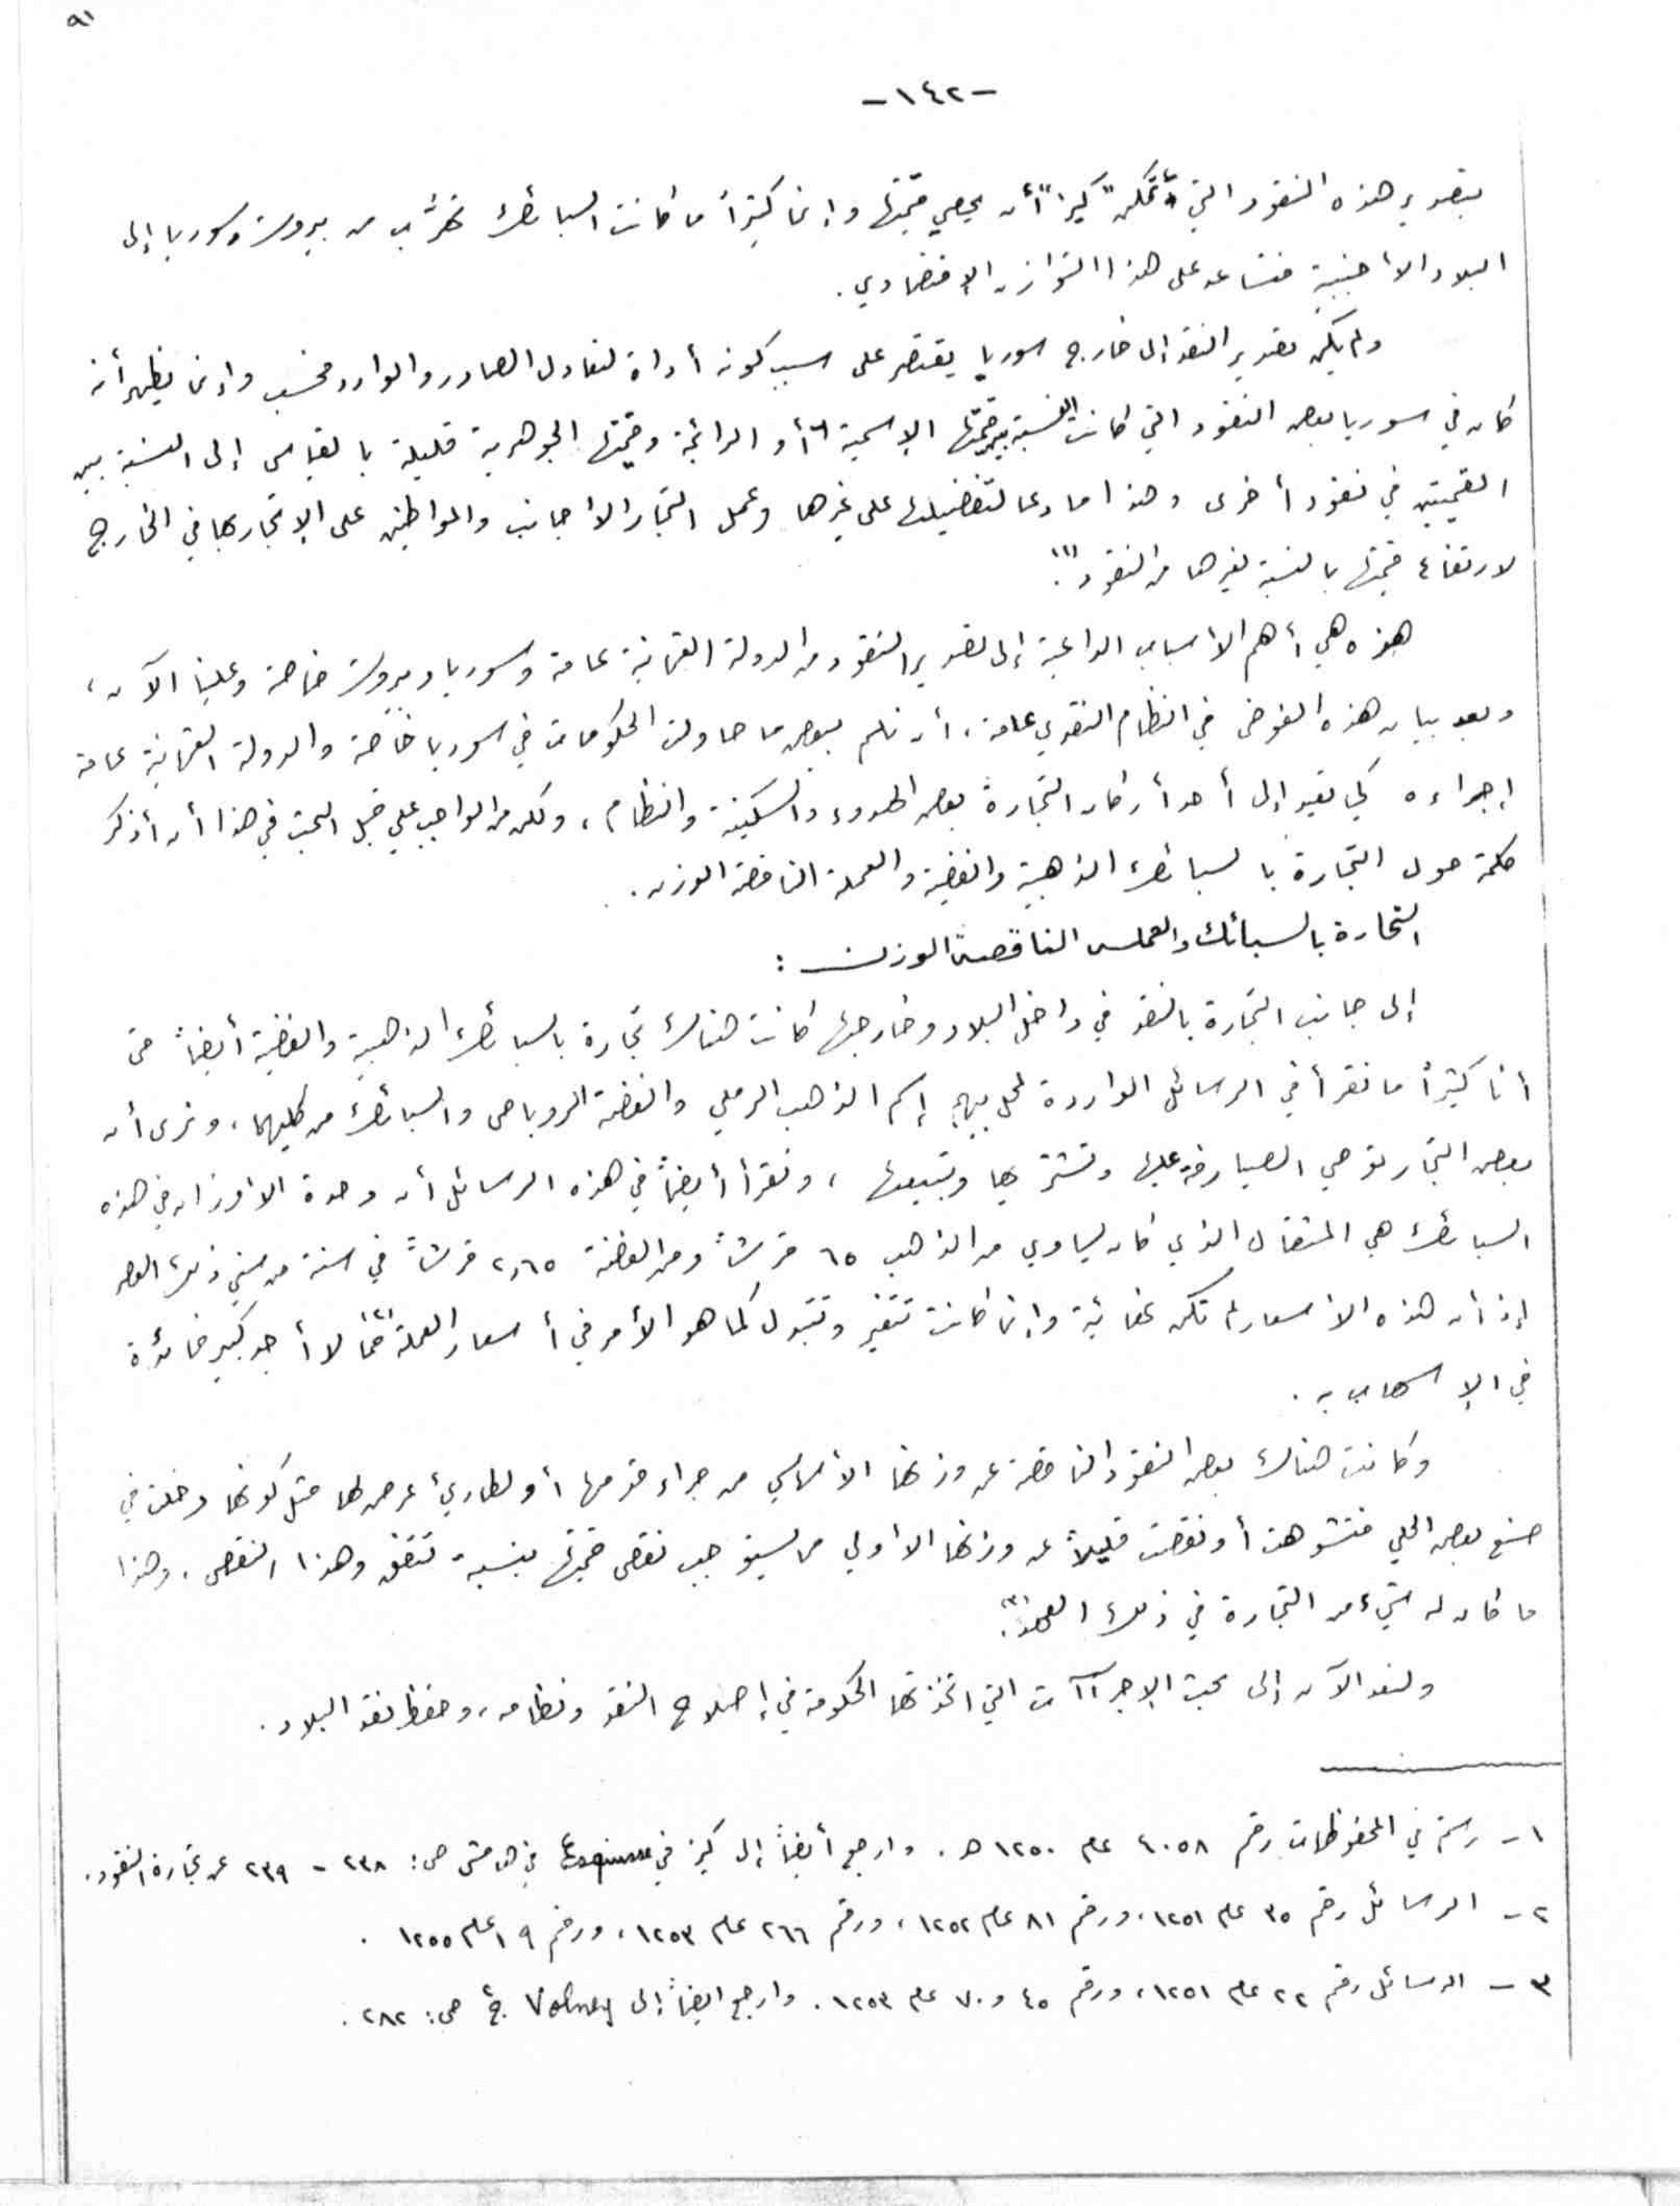 ٩١
-١٤٢-
بتصدير هذه النقود التي تمكن "كيز" أن يحصي قيمتها وإنما كثيراً ما كانت السبائك تهرّب من بيروت وسوريا إلى
البلاد الأجنبية فتساعد على هذا التوازن الإقتصادي.
ولم يكن تصدير النقد إلى خارج سوريا يقتصر على سبب كونه أداة لتعادل الصادر والوارد فحسب وإنما يظهر أنه
كان في سوريا بعض النقود التي كانت النسبة بين قيمتها الإسمية أو الرائجة وقيمتها الجوهرية قليلة بالقياس إلى النسبة بين
القيمتين في نقود أخرى وهذا ما دعا لتفضيلها على غيرها وعمل التجار الأجانب والمواطنين على الإتجار بها في الخارج
لارتفاع قيمتها بالنسبة لغيرها من النقود (١).
هذه هي أهم الأسباب الداعية إلى تصدير النقود من الدولة العثمانية عامة وسوريا وبيروت خاصة وعلينا الآن،
وبعد بيان هذه الفوضى في النظام النقدي عامة، أن نلم ببعض ما حاولت الحكومات في سوريا خاصة والدولة العثمانية عامة
إجراءه كي تعيد إلى أحد أركان التجارة بعض الهدوء والسكينة والنظام، ولكن من الواجب علي قبل البحث في هذا أن أذكر
كلمة حول التجارة بالسبائك الذهبية والفضية والعملة الناقصة الوزن.
التجارة بالسبائك والعملة الناقصة الوزن :
إلى جانب التجارة بالنقد في داخل البلاد وخارجها كانت هناك تجارة بالسبائك الذهبية والفضية أيضاً حتى
أنا كثيراً ما نقرأ في الرسائل الواردة لمحل بيهم إسم الذهب الرملي والفضة الروباص والسبائك من كليهما، ونرى أن
بعض التجار توصي الصيارفة عليها وتشتريها وتبيعها، ونقرأ أيضاً في هذه الرسائل أن وحدة الأوزان في هذه
السبائك هي المثقال الذي كان يساوي من الذهب ٦٥ قرشاً ومن الفضة ٢,٦٥ قرشاً في سنة من سني ذلك العصر
إذ أن هذه الأسعار لم تكن نهائية وإنما كانت تتغير وتتبدل كما هو الأمر في أسعار العملة (٢) مما لا أجد كبير فائدة
في الإسهاب به.
وكانت هناك بعض النقود الناقصة عن وزنها الأساسي من جراء قدمها أو لطارئ عرض لها مثل كونها دخلت في
صنع بعض الحلي فتشوهت أو نقصت قليلاً عن وزنها الأولي مما يستوجب نقص قيمتها بنسبة تتفق وهذا النقص. وهذا
ما كان له شيء من التجارة في ذلك العهد (٣).
ولنعد الآن إلى بحث الإجراآت التي اتخذتها الحكومة في إصلاح النقد ونظامه، وحفظ نقد البلاد.
١- رستم في المحفوظات رقم ٤٠٥٨ عام ١٢٥٠ هـ. وارجع أيضاً إلى كيز في Esquisse في هامش ص: ٢٣٨ - ٢٣٩ عن تجارة النقود.
٢- الرسائل رقم ٣٥ عام ١٢٥١، ورقم ٨١ عام ١٢٥٢، ورقم ٢٦٦ عام ١٢٥٣، ورقم ١٩ عام ١٢٥٥.
٣- الرسائل رقم ٢٢ عام ١٢٥١، ورقم ٤٥ و ٧٠ عام ١٢٥٣. وارجع ايضاً إلى Volney ص: ٢٨٢.